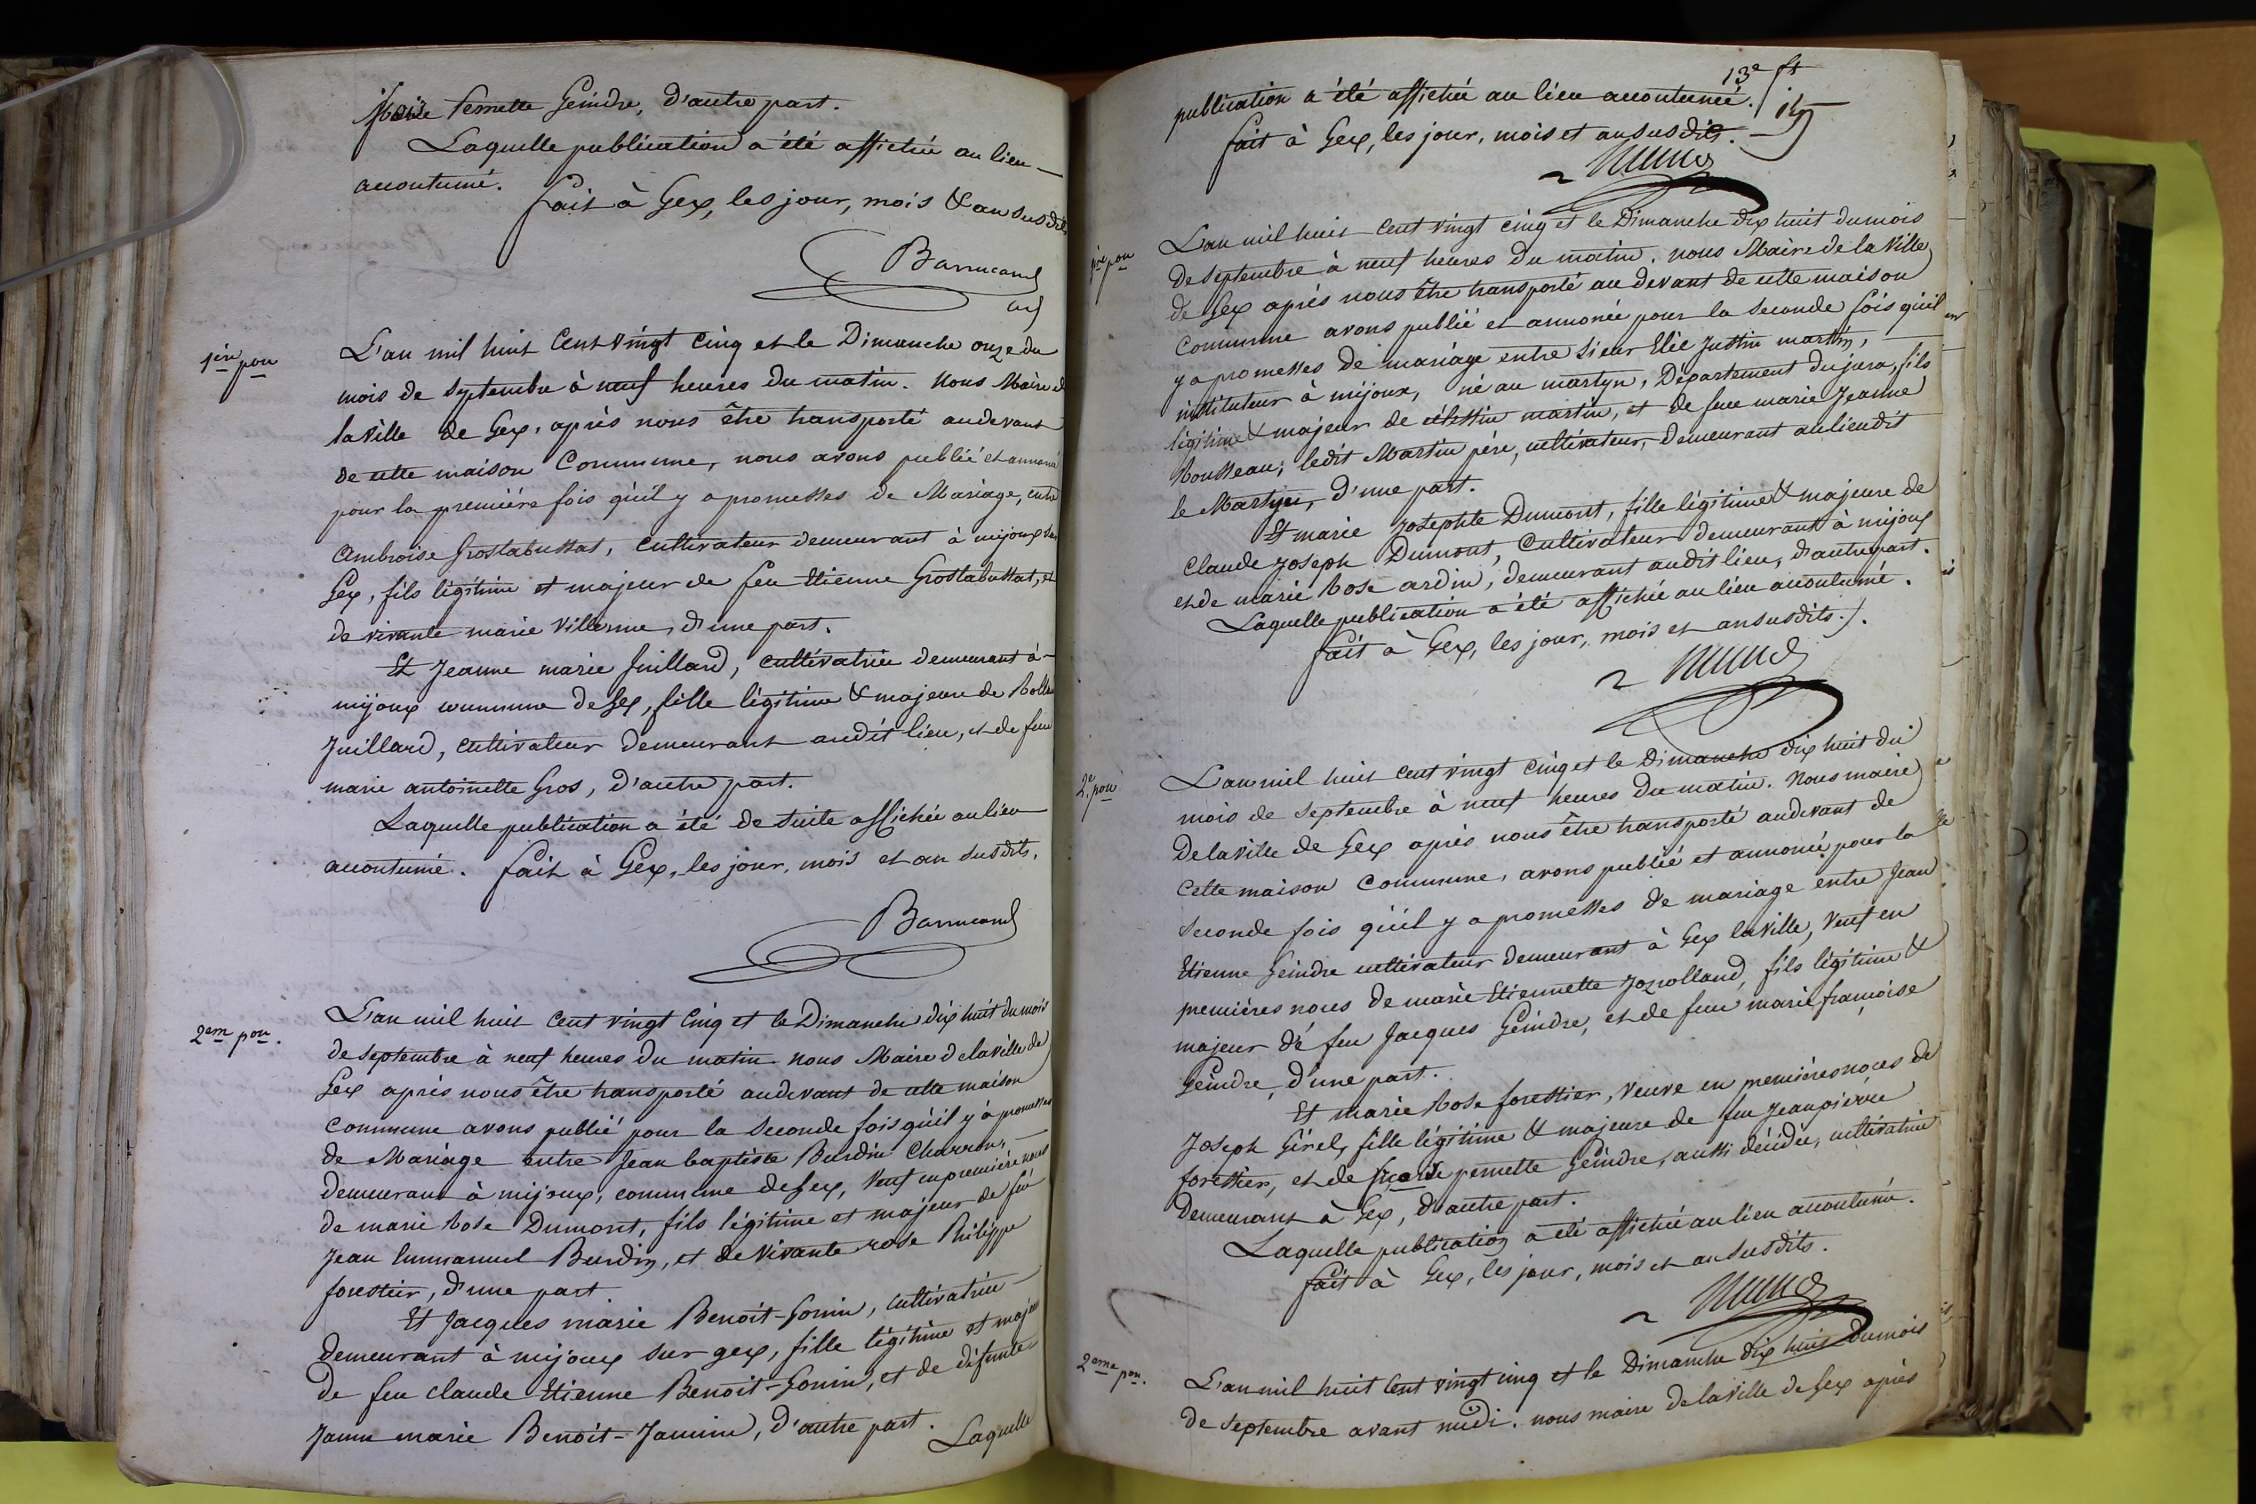 pernette Geindre, d'autre part.
Laquelle publication a été affichée au lieu
accoutumé. fait à Gex, les jour, mois & an susdits
Barrucand
1ère pon
L'an mil huit Cent vingt cinq et le Dimanche onze du
mois de septembre à neuf heures du matin. Nous Maire de
la ville de Gex, après nous être transporté audevant
de cette maison Commune, nous avons publié et annoncé
pour la première fois qu'il y a promesses de Mariage, entre
Ambroise Grostabussat, cultivateur demeurant à mijoux sur
Gex, fils légitime et majeur de feu Etienne Grostabussat, et
de vivante marie Villerme, d'une part.
Et Jeanne marie Juillard, cultivatrice demeurant à
mijoux commune de Gex, fille légitime & majeure de
Juillard, cultivateur demeurant audit lieu, et de feue
marie antoinette Gros, d'autre part.
Laquelle publication a été de suite affichée au lieu
accoutumé. fait à Gex, les jour, mois et an susdits.
Barrucand
2em pon.
L'an mil huit cent vingt cinq et le Dimanche dix huit du mois
de septembre à neuf heures du matin. nous Maire de la ville de
Gex après nous être transporté audevant de cette maison
Commune avons publié pour la seconde fois qu'il y a promesses
de Mariage entre Jean baptiste Burdin Charron,
demeurant à mijoux, commune de Gex, Veuf en première noces
de marie Rose Dumont, fils légitime et majeur de feu
Jean Emmanuel Burdin, et de vivante rose Philippe
forestier, d'une part.
Et Jacques marie Benoit-Gonin, cultivatrice
demeurant à mijoux sur gex, fille légitime et majeure
de feu claude Etienne Benoit-Gonin, et de défunte
Jeanne marie Benoit-Jannin, d'autre part.
Laquelle
13e ft
publication a été affichée au lieu accoutumé.
fait à Gex, les jour, mois et an susdits.
1re pon
L'an mil huit cent vingt cinq et le Dimanche dix huit du mois
de septembre à neuf heures du matin. nous Maire de la Ville
de Gex après nous être transporté au devant de cette maison
Commune avons publié et annoncé pour la seconde fois qu'il
y a promesses de mariage entre sieur Elie Justin martin,
instituteur à mijoux, né au martyn, Département du jura, fils
légitime & majeur de célestin martin, et de feue marie Jeanne
Rousseau; ledit Martin père, cultivateur, demeurant au lieu dit
le Martyn, d'une part.
Et marie Josephte Dumont, fille légitime & majeure de
Claude Joseph Dumont, Cultivateur demeurant à mijoux
et de marie Rose ardin, demeurant audit lieu, d'autre part.
Laquelle publication a été affichée au lieu accoutumé.
fait à Gex, les jour, mois et an susdits./.
2e pon
L'an mil huit cent vingt cinq et le Dimanche dix huit du
mois de septembre à neuf heures du matin. Nous maire
de la ville de Gex après nous être transporté audevant de
Cette maison Commune, avons publié et annoncé pour la
seconde fois qu'il y a promesses de mariage entre Jean
Etienne Geindre cultivateur demeurant à Gex la ville, veuf en
premières noces de marie Etiennette Jozrolland, fils légitime &
majeur de feu Jacques Geindre, et de feue marie françoise
Geindre, d'une part.
Et marie Rose forestier, veuve en premières noces de
Joseph Girel, fille légitime & majeure de feu Jean pierre
forestier, et de pernette Geindre, aussi décédée, cultivatrice
demeurant à Gex, d'autre part.
Laquelle publication a été affichée au lieu accoutumé.
fait à Gex, les jour, mois et an susdits.
2eme pon.
L'an mil huit cent vingt cinq et le Dimanche dix huit du mois
de septembre avant midi. nous maire de la ville de Gex après